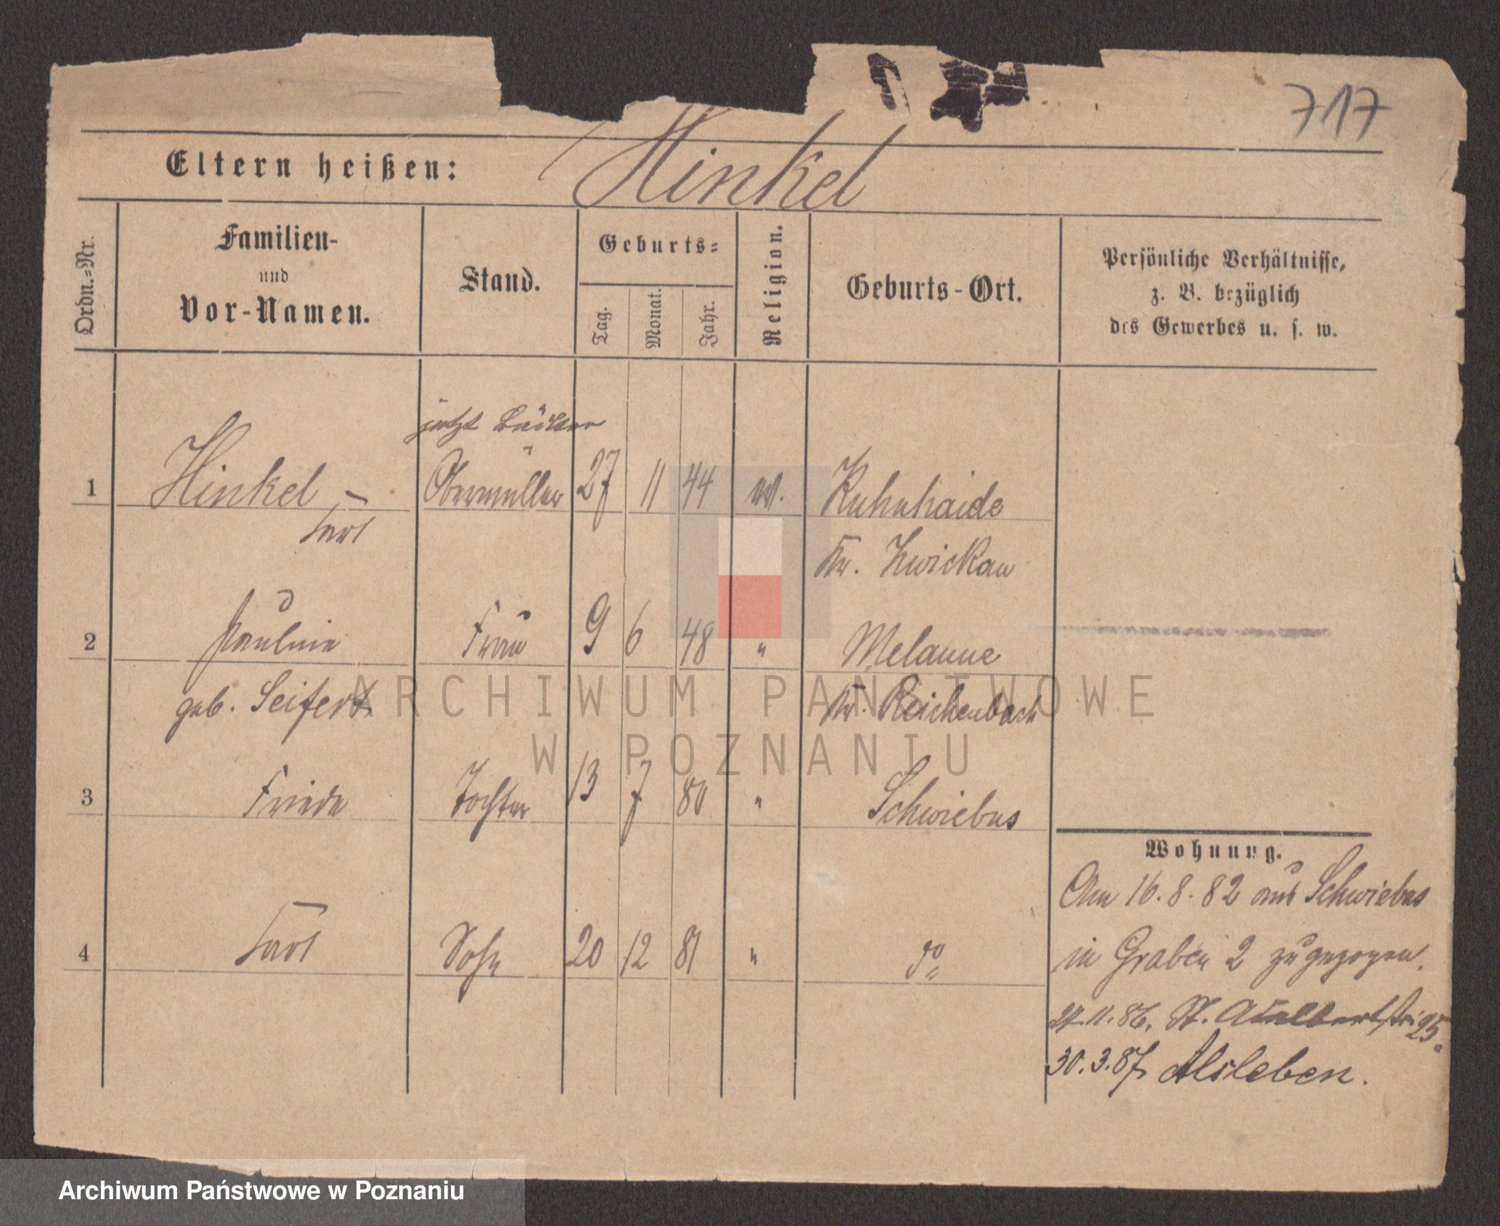 717
Eltern heißen: Hinkel
Ordn.=Nr.
Familien-
und
Vor-Namen.
Stand.
Geburts=
Tag.
Monat.
Jahr.
Religion.
Geburts-Ort.
Persönliche Verhältnisse,
z. B. bezüglich
des Gewerbes u. s. w.
jetzt Bäcker
1 Hinkel – Obermüller 27 11 44 Kuhnhaide
Carl
Kr. Zwickau
2 Pauline Frau 9 6 48 " Melaune
geb. Seifert Kr. Reichenbach
3 Friede Tochter 13 7 80 " Schwiebus
4 Carl Sohn 20 12 81 " do
Wohnung.
Am 16.8.82 aus Schwiebus
in Graben 2 zugezogen.
27.11.86. St. Adalbertstr. 25.
30.3.87 Alsleben.
ARCHIWUM PAŃSTWOWE
W POZNANIU
Archiwum Państwowe w Poznaniu